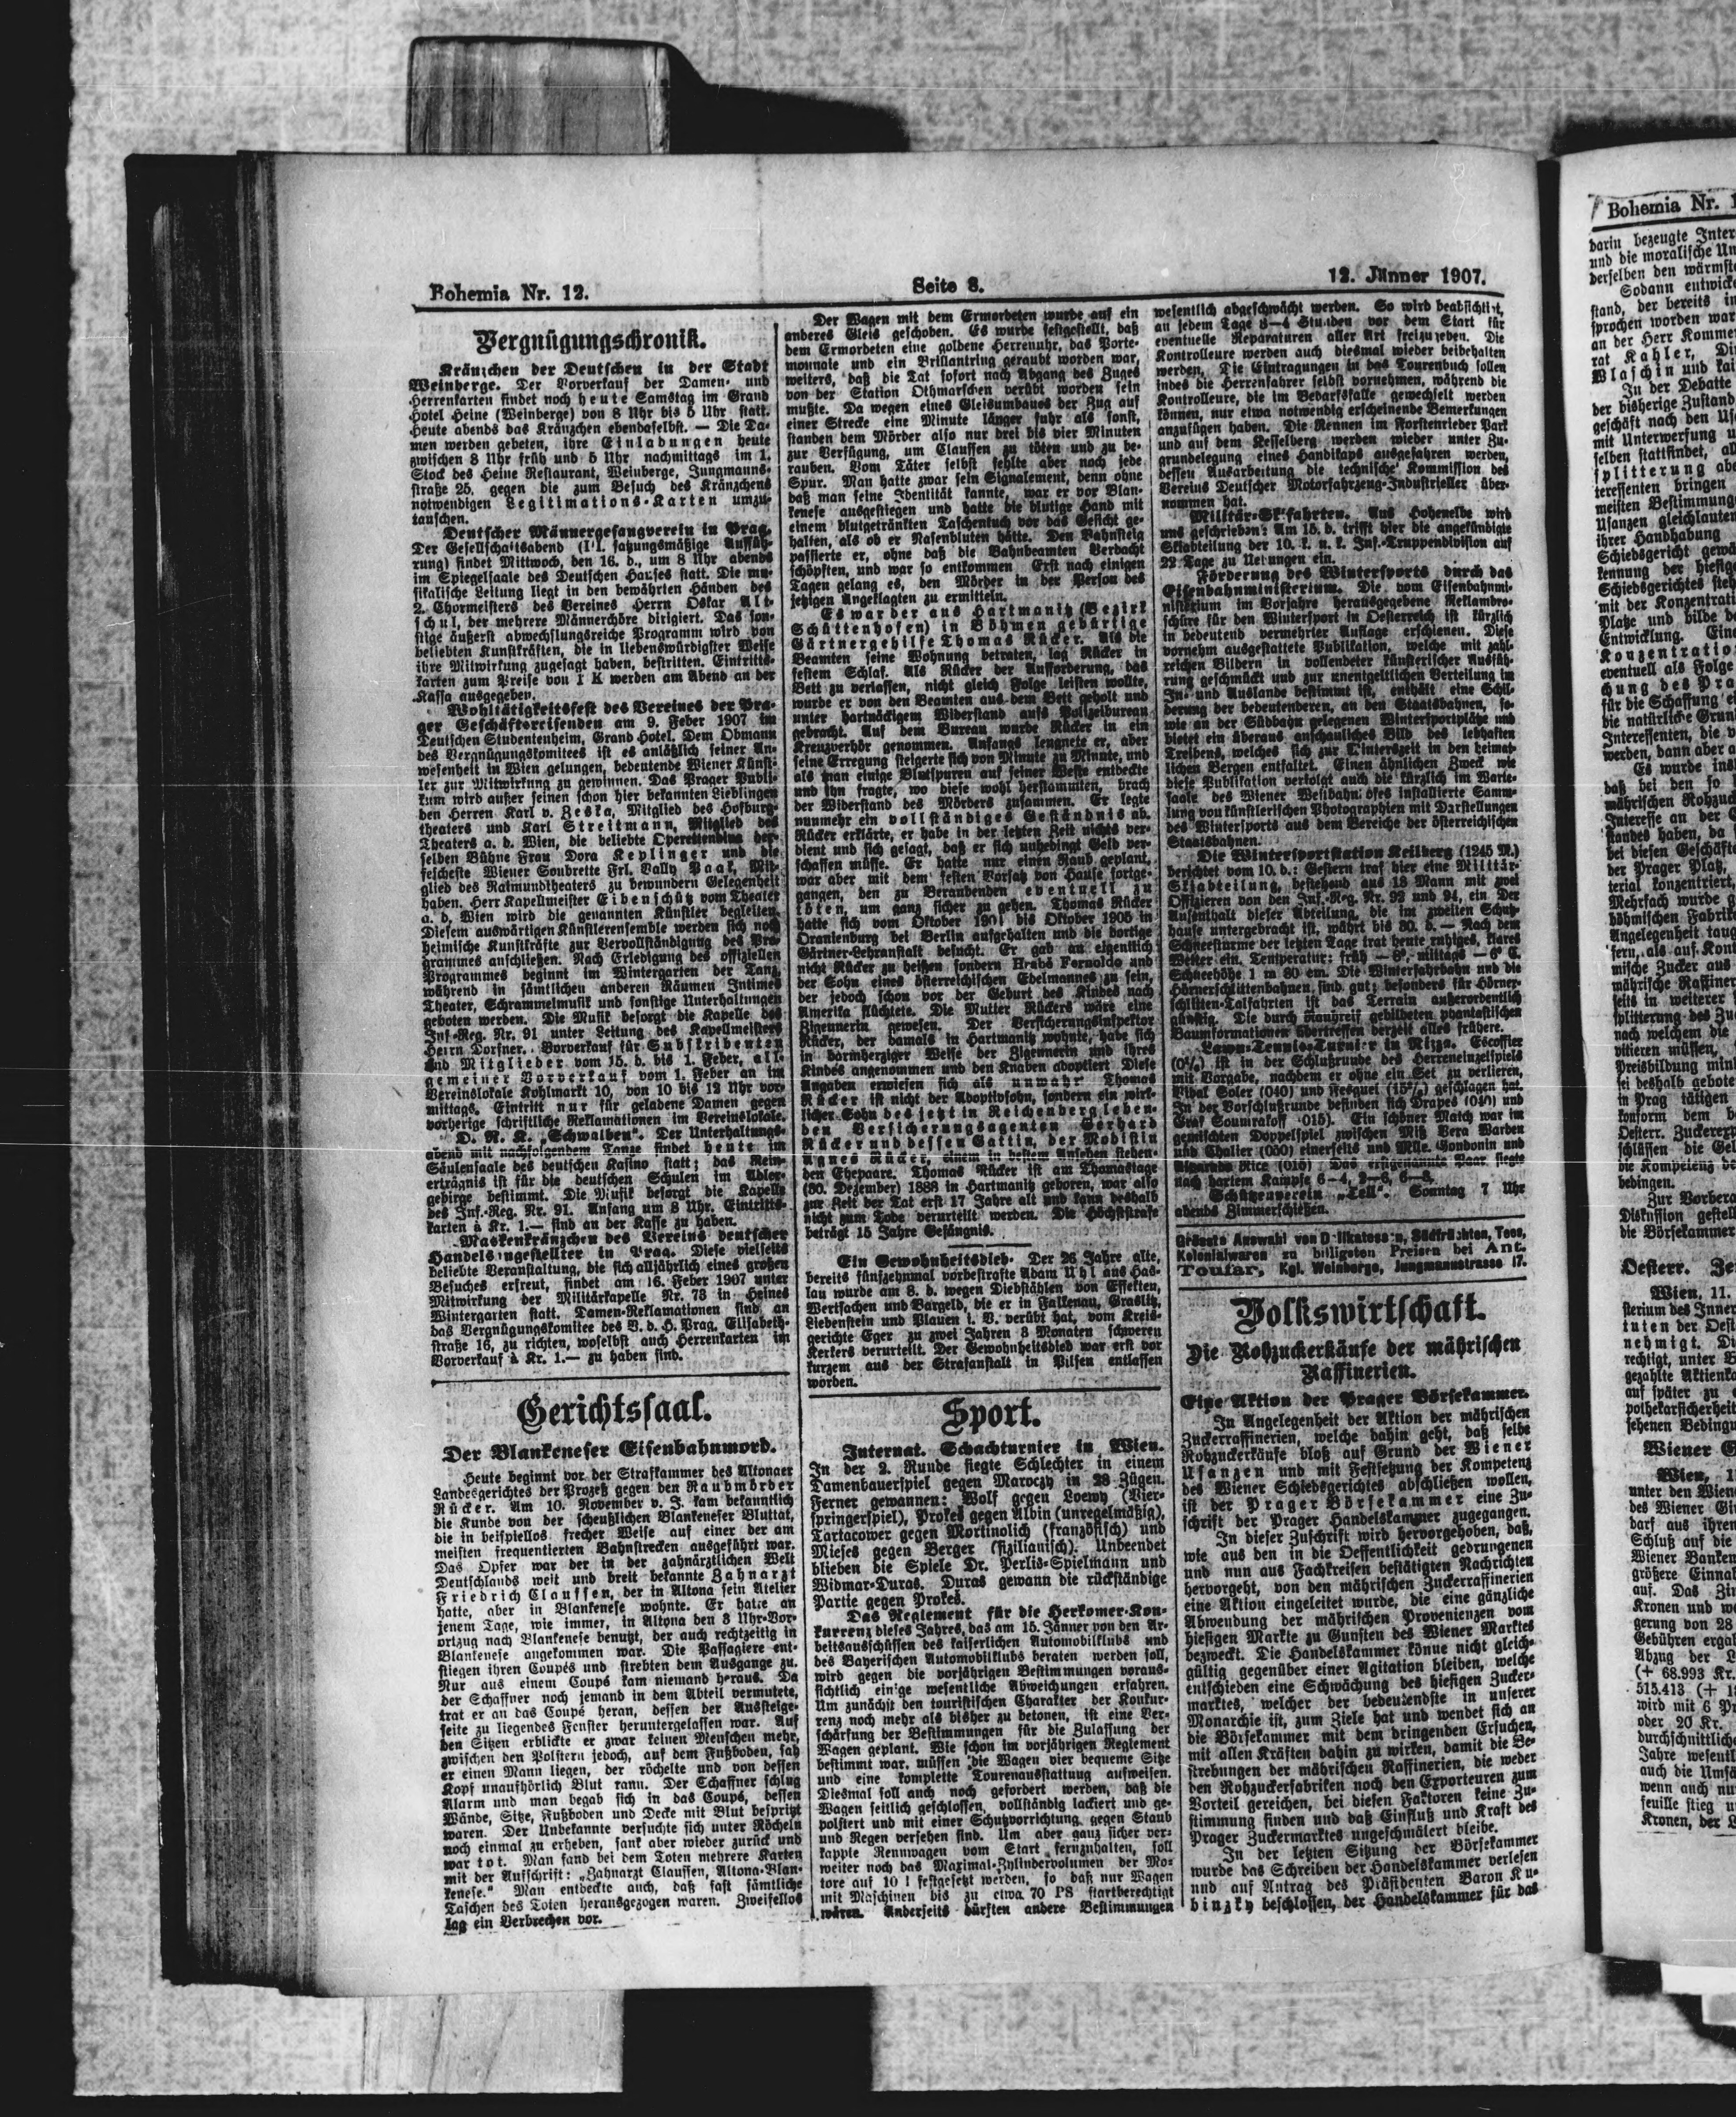 Bohemia Nr. 12.
Seite 8.
12. Jänner 1907.
Vergnügungschronik.
Kränzchen der Deutschen in der Stadt
Weinberge. Der Vorverkauf der Damen- und
Herrenkarten findet noch heute Samstag im Grand
Hotel Heine (Weinberge) von 8 Uhr bis 5 Uhr statt.
Heute abends das Kränzchen ebendaselbst. — Die Da-
men werden gebeten, ihre Einladungen heute
zwischen 8 Uhr früh und 5 Uhr nachmittags im 1.
Stock des Heine Restaurant, Weinberge, Jungmanns-
straße 25, gegen die zum Besuch des Kränzchens
notwendigen Legitimations-Karten umzu-
tauschen.
Deutscher Männergesangverein in Prag.
Der Gesellschaftsabend (III. satzungsmäßige Auffüh-
rung) findet Mittwoch, den 16. d., um 8 Uhr abends
im Spiegelsaale des Deutschen Hauses statt. Die mu-
sikalische Leitung liegt in den bewährten Händen des
2. Chormeisters des Vereines Herrn Oskar Alt-
schul, der mehrere Männerchöre dirigiert. Das son-
stige äußerst abwechslungsreiche Programm wird von
beliebten Kunstkräften, die in liebenswürdigster Weise
ihre Mitwirkung zugesagt haben, bestritten. Eintritts-
karten zum Preise von 1 K werden am Abend an der
Kassa ausgegeben.
Wohltätigkeitsfest des Vereines der Pra-
ger Geschäftsreisenden am 9. Feber 1907 im
Deutschen Studentenheim, Grand Hotel. Dem Obmann
des Vergnügungskomitees ist es anläßlich seiner An-
wesenheit in Wien gelungen, bedeutende Wiener Künst-
ler zur Mitwirkung zu gewinnen. Das Prager Publi-
kum wird außer seinen schon hier bekannten Lieblingen
den Herren Karl v. Zeska, Mitglied des Hofburg-
theaters und Karl Streitmann, Mitglied des
Theaters a. d. Wien, die beliebte Operettendiva der-
selben Bühne Frau Dora Keplinger und die
fescheste Wiener Soubrette Frl. Vally Paak, Mit-
glied des Raimundtheaters zu bewundern Gelegenheit
haben. Herr Kapellmeister Eibenschütz vom Theater
a. d. Wien wird die genannten Künstler begleiten.
Diesem auswärtigen Künstlerensemble werden sich noch
heimische Kunstkräfte zur Vervollständigung des Pro-
grammes anschließen. Nach Erledigung des offiziellen
Programmes beginnt im Wintergarten der Tanz,
während in sämtlichen anderen Räumen Intimes
Theater, Schrammelmusik und sonstige Unterhaltungen
geboten werden. Die Musik besorgt die Kapelle des
Inf.-Reg. Nr. 91 unter Leitung des Kapellmeisters
Herrn Dorfner. Vorverkauf für Subskribenten
und Mitglieder vom 15. d. bis 1. Feber, all-
gemeiner Vorverkauf vom 1. Feber an im
Vereinslokale Kohlmarkt 10, von 10 bis 12 Uhr vor-
mittags. Eintritt nur für geladene Damen gegen
vorherige schriftliche Reklamationen im Vereinslokale.
D. R. K. „Schwalben“. Der Unterhaltungs-
abend mit nachfolgendem Tanze findet heute im
Säulensaale des deutschen Kasino statt; das Rein-
erträgnis ist für die deutschen Schulen im Adler-
gebirge bestimmt. Die Musik besorgt die Kapelle
des Inf.-Reg. Nr. 91. Anfang um 8 Uhr. Eintritts-
karten à Kr. 1.— sind an der Kasse zu haben.
Maskenkränzchen des Vereins deutscher
Handelsangestellter in Prag. Diese vielseits
beliebte Veranstaltung, die sich alljährlich eines großen
Besuches erfreut, findet am 16. Feber 1907 unter
Mitwirkung der Militärkapelle Nr. 73 in Heines
Wintergarten statt. Damen-Reklamationen sind an
das Vergnügungskomitee des V. d. H. Prag, Elisabeth-
straße 16, zu richten, woselbst auch Herrenkarten im
Vorverkauf à Kr. 1.— zu haben sind.
Gerichtssaal.
Der Blankeneser Eisenbahnmord.
Heute beginnt vor der Strafkammer des Altonaer
Landesgerichtes der Prozeß gegen den Raubmörder
Rücker. Am 10. November v. J. kam bekanntlich
die Kunde von der scheußlichen Blankeneser Bluttat,
die in beispiellos frecher Weise auf einer der am
meisten frequentierten Bahnstrecken ausgeführt war.
Das Opfer war der in der zahnärztlichen Welt
Deutschlands weit und breit bekannte Zahnarzt
Friedrich Claussen, der in Altona sein Atelier
hatte, aber in Blankenese wohnte. Er hatte an
jenem Tage, wie immer, in Altona den 8 Uhr-Vor-
ortzug nach Blankenese benutzt, der auch rechtzeitig in
Blankenese angekommen war. Die Passagiere ent-
stiegen ihren Coupés und strebten dem Ausgange zu.
Nur aus einem Coupé kam niemand heraus. Da
der Schaffner noch jemand in dem Abteil vermutete,
trat er an das Coupé heran, dessen der Aussteige-
seite zu liegendes Fenster heruntergelassen war. Auf
den Sitzen erblickte er zwar keinen Menschen mehr,
zwischen den Polstern jedoch, auf dem Fußboden, sah
er einen Mann liegen, der röchelte und von dessen
Kopf unaufhörlich Blut rann. Der Schaffner schlug
Alarm und man begab sich in das Coupé, dessen
Wände, Sitze, Fußboden und Decke mit Blut bespritzt
waren. Der Unbekannte versuchte sich unter Röcheln
noch einmal zu erheben, sank aber wieder zurück und
war tot. Man fand bei dem Toten mehrere Karten
mit der Aufschrift: „Zahnarzt Claussen, Altona-Blan-
kenese.“ Man entdeckte auch, daß fast sämtliche
Taschen des Toten herausgezogen waren. Zweifellos
lag ein Verbrechen vor.
Der Wagen mit dem Ermordeten wurde auf ein
anderes Gleis geschoben. Es wurde festgestellt, daß
dem Ermordeten eine goldene Herrenuhr, das Porte-
monnaie und ein Brillantring geraubt worden war,
weiters, daß die Tat sofort nach Abgang des Zuges
von der Station Othmarschen verübt worden sein
mußte. Da wegen eines Gleisumbaues der Zug auf
einer Strecke eine Minute länger fuhr als sonst,
standen dem Mörder also nur drei bis vier Minuten
zur Verfügung, um Claussen zu töten und zu be-
rauben. Vom Täter selbst fehlte aber noch jede
Spur. Man hatte zwar sein Signalement, denn ohne
daß man seine Identität kannte, war er vor Blan-
kenese ausgestiegen und hatte die blutige Hand mit
einem blutgetränkten Taschentuch vor das Gesicht ge-
halten, als ob er Nasenbluten hätte. Den Bahnsteig
passierte er, ohne daß die Bahnbeamten Verdacht
schöpften, und war so entkommen Erst nach einigen
Tagen gelang es, den Mörder in der Person des
jetzigen Angeklagten zu ermitteln.
Es war der aus Hartmanitz (Bezirk
Schüttenhofen) in Böhmen gebürtige
Gärtnergehilfe Thomas Rücker. Als die
Beamten seine Wohnung betraten, lag Rücker in
festem Schlaf. Als Rücker der Aufforderung, das
Bett zu verlassen, nicht gleich Folge leisten wollte,
wurde er von den Beamten aus dem Bett geholt und
unter hartnäckigem Widerstand aufs Polizeibureau
gebracht. Auf dem Bureau wurde Rücker in ein
Kreuzverhör genommen. Anfangs leugnete er, aber
seine Erregung steigerte sich von Minute zu Minute, und
als man einige Blutspuren auf seiner Weste entdeckte
und ihn fragte, wo diese wohl herstammten, brach
der Widerstand des Mörders zusammen. Er legte
nunmehr ein vollständiges Geständnis ab.
Rücker erklärte, er habe in der letzten Zeit nichts ver-
dient und sich gesagt, daß er sich unbedingt Geld ver-
schaffen müsse. Er hatte nur einen Raub geplant,
war aber mit dem festen Vorsatz von Hause fortge-
gangen, den zu Beraubenden eventuell zu
töten, um ganz sicher zu gehen. Thomas Rücker
hatte sich vom Oktober 1901 bis Oktober 1905 in
Oranienburg bei Berlin aufgehalten und die dortige
Gärtner-Lehranstalt besucht. Er gab an eigentlich
nicht Rücker zu heißen sondern Hrabě Fernoldo und
der Sohn eines österreichischen Edelmannes zu sein,
der jedoch schon vor der Geburt des Kindes nach
Amerika flüchtete. Die Mutter Rückers wäre eine
Zigeunerin gewesen. Der Versicherungsinspektor
Rücker, der damals in Hartmanitz wohnte, habe sich
in barmherziger Weise der Zigeunerin und ihres
Kindes angenommen und den Knaben adoptiert Diese
Angaben erwiesen sich als unwahr Thomas
Rücker ist nicht der Adoptivsohn, sondern ein wirk-
licher Sohn des jetzt in Reichenberg leben-
den Versicherungsagenten Gerhard
Rücker und dessen Gattin, der Modistin
Agnes Rücker, einem in bestem Ansehen stehen-
den Ehepaare. Thomas Rücker ist am Thomastage
(30. Dezember) 1888 in Hartmanitz geboren, war also
zur Zeit der Tat erst 17 Jahre alt und kann deshalb
nicht zum Tode verurteilt werden. Die Höchststrafe
beträgt 15 Jahre Gefängnis.
Ein Gewohnheitsdieb. Der 26 Jahre alte,
bereits fünfzehnmal vorbestrafte Adam Uhl aus Has-
lau wurde am 8. d. wegen Diebstählen von Effekten,
Wertsachen und Bargeld, die er in Falkenau, Graslitz,
Liebenstein und Plauen i. V. verübt hat, vom Kreis-
gerichte Eger zu zwei Jahren 8 Monaten schweren
Kerkers verurteilt. Der Gewohnheitsdieb war erst vor
kurzem aus der Strafanstalt in Pilsen entlassen
worden.
Sport.
Internat. Schachturnier in Wien.
In der 2. Runde siegte Schlechter in einem
Damenbauerspiel gegen Maroczy in 28 Zügen.
Ferner gewannen: Wolf gegen Loewy (Vier-
springerspiel), Prokes gegen Albin (unregelmäßig),
Tartacower gegen Mortinolich (französisch) und
Mieses gegen Berger (sizilianisch). Unbeendet
blieben die Spiele Dr. Perlis-Spielmann und
Widmar-Duras. Duras gewann die rückständige
Partie gegen Prokes.
Das Reglement für die Herkomer-Kon-
kurrenz dieses Jahres, das am 15. Jänner von den Ar-
beitsausschüssen des kaiserlichen Automobilklubs und
des Bayerischen Automobilklubs beraten werden soll,
wird gegen die vorjährigen Bestimmungen voraus-
sichtlich einige wesentliche Abweichungen erfahren.
Um zunächst den touristischen Charakter der Konkur-
renz noch mehr als bisher zu betonen, ist eine Ver-
schärfung der Bestimmungen für die Zulassung der
Wagen geplant. Wie schon im vorjährigen Reglement
bestimmt war, müssen die Wagen vier bequeme Sitze
und eine komplette Tourenausstattung aufweisen.
Diesmal soll auch noch gefordert werden, daß die
Wagen seitlich geschlossen, vollständig lackiert und ge-
polstert und mit einer Schutzvorrichtung gegen Staub
und Regen versehen sind. Um aber ganz sicher ver-
kapple Rennwagen vom Start fernzuhalten, soll
weiter noch das Maximal-Zylindervolumen der Mo-
tore auf 10 l festgesetzt werden, so daß nur Wagen
mit Maschinen bis zu etwa 70 PS startberechtigt
wären. Anderseits dürften andere Bestimmungen
wesentlich abgeschwächt werden. So wird beabsichtigt,
an jedem Tage 3—4 Stunden vor dem Start für
eventuelle Reparaturen aller Art freizugeben. Die
Kontrolleure werden auch diesmal wieder beibehalten
werden. Die Eintragungen in das Tourenbuch sollen
indes die Herrenfahrer selbst vornehmen, während die
Kontrolleure, die im Bedarfsfalle gewechselt werden
können, nur etwa notwendig erscheinende Bemerkungen
anzufügen haben. Die Rennen im Forstenrieder Park
und auf dem Kesselberg werden wieder unter Zu-
grundelegung eines Handikaps ausgefahren werden,
dessen Ausarbeitung die technische Kommission des
Vereins Deutscher Motorfahrzeug-Industrieller über-
nommen hat.
Militär-Skifahrten. Aus Hohenelbe wird
uns geschrieben: Am 15. d. trifft hier die angekündigte
Skiabteilung der 10. k. u. k. Inf.-Truppendivision auf
22 Tage zu Uebungen ein.
Förderung des Wintersports durch das
Eisenbahnministerium. Die vom Eisenbahnmi-
nisterium im Vorjahre herausgegebene Reklambro-
schüre für den Wintersport in Oesterreich ist kürzlich
in bedeutend vermehrter Auflage erschienen. Diese
vornehm ausgestattete Publikation, welche mit zahl-
reichen Bildern in vollendeter künstlerischer Ausfüh-
rung geschmückt und zur unentgeltlichen Verteilung im
In- und Auslande bestimmt ist, enthält eine Schil-
derung der bedeutenderen, an den Staatsbahnen, so-
wie an der Südbahn gelegenen Wintersportplätze und
bietet ein überaus anschauliches Bild des lebhaften
Treibens, welches sich zur Winterszeit in den heimat-
lichen Bergen entfaltet. Einen ähnlichen Zweck wie
diese Publikation verfolgt auch die kürzlich im Warte-
saale des Wiener Westbahnhofes installierte Samm-
lung von künstlerischen Photographien mit Darstellungen
des Wintersports aus dem Bereiche der österreichischen
Staatsbahnen.
Die Wintersportstation Keilberg (1245 M.)
berichtet vom 10. d.: Gestern traf hier eine Militär-
Skiabteilung, bestehend aus 18 Mann mit zwei
Offizieren von den Inf.-Reg. Nr. 92 und 94, ein Der
Aufenthalt dieser Abteilung, die im zweiten Schutz-
hause untergebracht ist, währt bis 30. d. — Nach dem
Schneesturme der letzten Tage trat heute ruhiges, klares
Wetter ein. Temperatur: früh — 8°, mittags — 6° C.
Schneehöhe 1 m 80 cm. Die Winterfahrbahn und die
Hörnerschlittenbahnen sind gut; besonders für Hörner-
schlitten-Talfahrten ist das Terrain außerordentlich
günstig. Die durch Rauhreif gebildeten phantastischen
Baumformationen übertreffen derzeit alles frühere.
Lawn-Tennis-Turnier in Nizza. Escoffier
(0%) ist in der Schlußrunde des Herreneinzelspiels
mit Vorgabe, nachdem er ohne ein Set zu verlieren,
Vidal Soler (040) und Fesquel (15%) geschlagen hat.
In der Vorschlußrunde befinden sich Drapes (040) und
Graf Soumrakoff (015). Ein schöner Match war im
gemischten Doppelspiel zwischen Miß Vera Warden
und Chalier (030) einerseits und Mlle. Gondonin und
Rice (015) Das erstgenannte Paar siegte
nach hartem Kampfe 6—4, 3—6, 6—3.
Schützenverein „Tell“. Sonntag 7 Uhr
abends Zimmerschießen.
Grösste Auswahl von Delikatessen, Südfrüchten, Tees,
Kolonialwaren zu billigsten Preisen bei Ant.
Toufar, Kgl. Weinberge, Jungmannstrasse 17.
Volkswirtschaft.
Die Rohzuckerkäufe der mährischen
Raffinerien.
Eine Aktion der Prager Börsekammer.
In Angelegenheit der Aktion der mährischen
Zuckerraffinerien, welche dahin geht, daß selbe
Rohzuckerkäufe bloß auf Grund der Wiener
Usanzen und mit Festsetzung der Kompetenz
des Wiener Schiedsgerichtes abschließen wollen,
ist der Prager Börsekammer eine Zu-
schrift der Prager Handelskammer zugegangen.
In dieser Zuschrift wird hervorgehoben, daß,
wie aus den in die Oeffentlichkeit gedrungenen
und nun aus Fachkreisen bestätigten Nachrichten
hervorgeht, von den mährischen Zuckerraffinerien
eine Aktion eingeleitet wurde, die eine gänzliche
Abwendung der mährischen Provenienzen vom
hiesigen Markte zu Gunsten des Wiener Marktes
bezweckt. Die Handelskammer könne nicht gleich-
gültig gegenüber einer Agitation bleiben, welche
entschieden eine Schwächung des hiesigen Zucker-
marktes, welcher der bedeutendste in unserer
Monarchie ist, zum Ziele hat und wendet sich an
die Börsekammer mit dem dringenden Ersuchen,
mit allen Kräften dahin zu wirken, damit die Be-
strebungen der mährischen Raffinerien, die weder
den Rohzuckerfabriken noch den Exporteuren zum
Vorteil gereichen, bei diesen Faktoren keine Zu-
stimmung finden und daß Einfluß und Kraft des
Prager Zuckermarktes ungeschmälert bleibe.
In der letzten Sitzung der Börsekammer
wurde das Schreiben der Handelskammer verlesen
und auf Antrag des Präsidenten Baron Ku-
binzky beschlossen, der Handelskammer für das
Bohemia Nr. 1
darin bezeugte Inter
und die moralische Un
derselben den wärmst
Sodann entwicke
stand, der bereits in
sprochen worden war
an der Herr Komme
rat Kahler, Di
Wlaschin und kai
In der Debatte
der bisherige Zustand
geschäft nach den Us
mit Unterwerfung u
selben stattfindet, al
splitterung abe
teressenten bringen
meisten Bestimmung
Usanzen gleichlauten
ihrer Handhabung
Schiedsgericht gewä
kennung der hiesige
Schiedsgerichtes steh
mit der Konzentrati
Platze und bilde be
Entwicklung. Eine
Konzentration
eventuell als Folge
chung des Pra
für die Schaffung ei
die natürliche Grun
Interessenten, die v
werden, dann aber a
Es wurde ins
daß bei den so
mährischen Rohzuck
Interesse an der G
standes haben, da
bei diesen Geschäfte
der Prager Platz,
terial konzentriert,
Mehrfach wurde g
böhmischen Fabrike
Angelegenheit taug
fern, als auf Kon
mische Zucker aus
mährische Raffiner
seits in weiterer
splitterung des Zu
nach welchem die
vitieren müssen,
Preisbildung mind
sei deshalb gebote
in Prag tätigen
konform dem b
Oesterr. Zuckerexp
schlüssen die Gel
die Kompetenz de
bedingen.
Zur Vorbera
Diskussion gestell
die Börsekammer
Oesterr. Ze
Wien, 11.
sterium des Inner
tuten der Oest
nehmigt. Di
rechtigt, unter B
gezahlte Aktienka
auf später zu
pothekarsicherheit
sehenen Bedingu
Wiener G
Wien, 1
unter den Wien
des Wiener Gi
darf aus ihren
Schluß auf die
Wiener Banken
größere Einnah
auf. Das Zin
Kronen und we
gerung von 28
Gebühren ergab
Abzug der L
(+ 68.993 Kr.
515.413 (+ 18
wird mit 6 Pr
oder 20 Kr.
durchschnittlich
Jahre wesentl
auch die Umsä
wenn auch nu
feuille stieg g
Kronen, der L